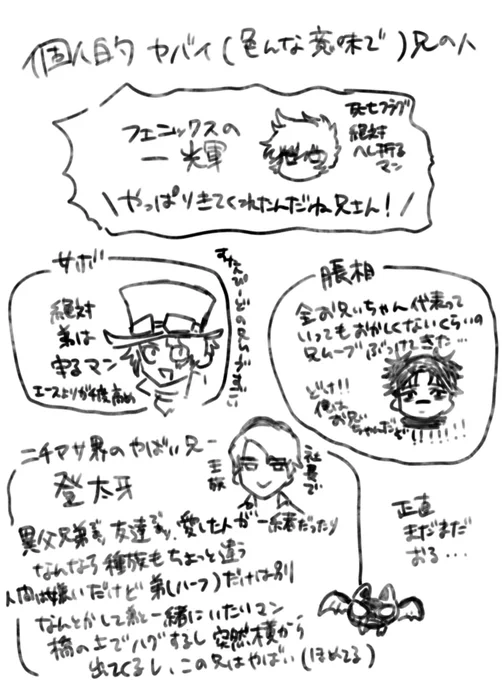 個人的 ヤバイ(色んな意味で)兄の人
フェニックスの
一輝
死亡フラグ
絶対
へし折る
マン
\やっぱりきてくれたんだね兄さん!/
サボ
絶対
弟は
守るマン
エースよりガチ度高め
脹相
全お兄ちゃん代表って
いってもおかしくないくらいの
兄ムーブぶつけてきた…
どけ!!
俺は
お兄
ちゃんだぞ!!!!!!
ニチアサ界のやばい兄ー
登太牙
社長で
王族
異父兄弟だし、友達だし、愛した人が一緒だったり
なんなら種族もちょっと違う
人間は嫌いだけど弟(ハーフ)だけは別
なんとかして弟と一緒にいたいマン
橋の上でハグするし突然横から
出てくるし、この兄はやばい(ほめてる)
正直
まだまだ
おる…